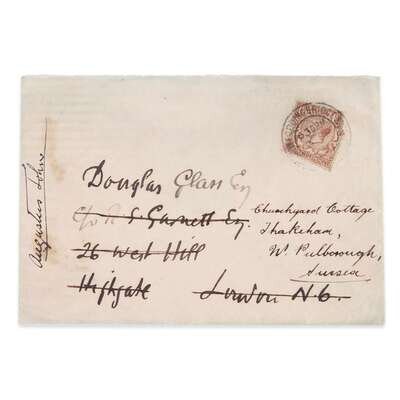 Augustus John
Douglas Glass Esq
c/o R. S. Garnett Esq.
26 West Hill
Highgate London N.6.
Churchyard Cottage
Thakeham,
W. Pulborough,
Sussex